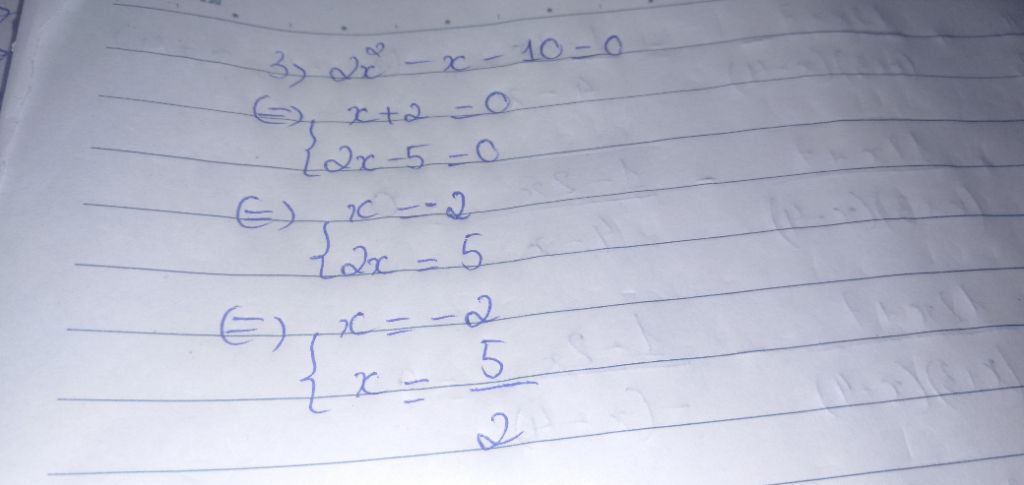 3) 2x² - x - 10 = 0
(=) { x + 2 = 0
2x - 5 = 0
(=) { x = -2
2x = 5
(=) { x = -2
x = 5/2